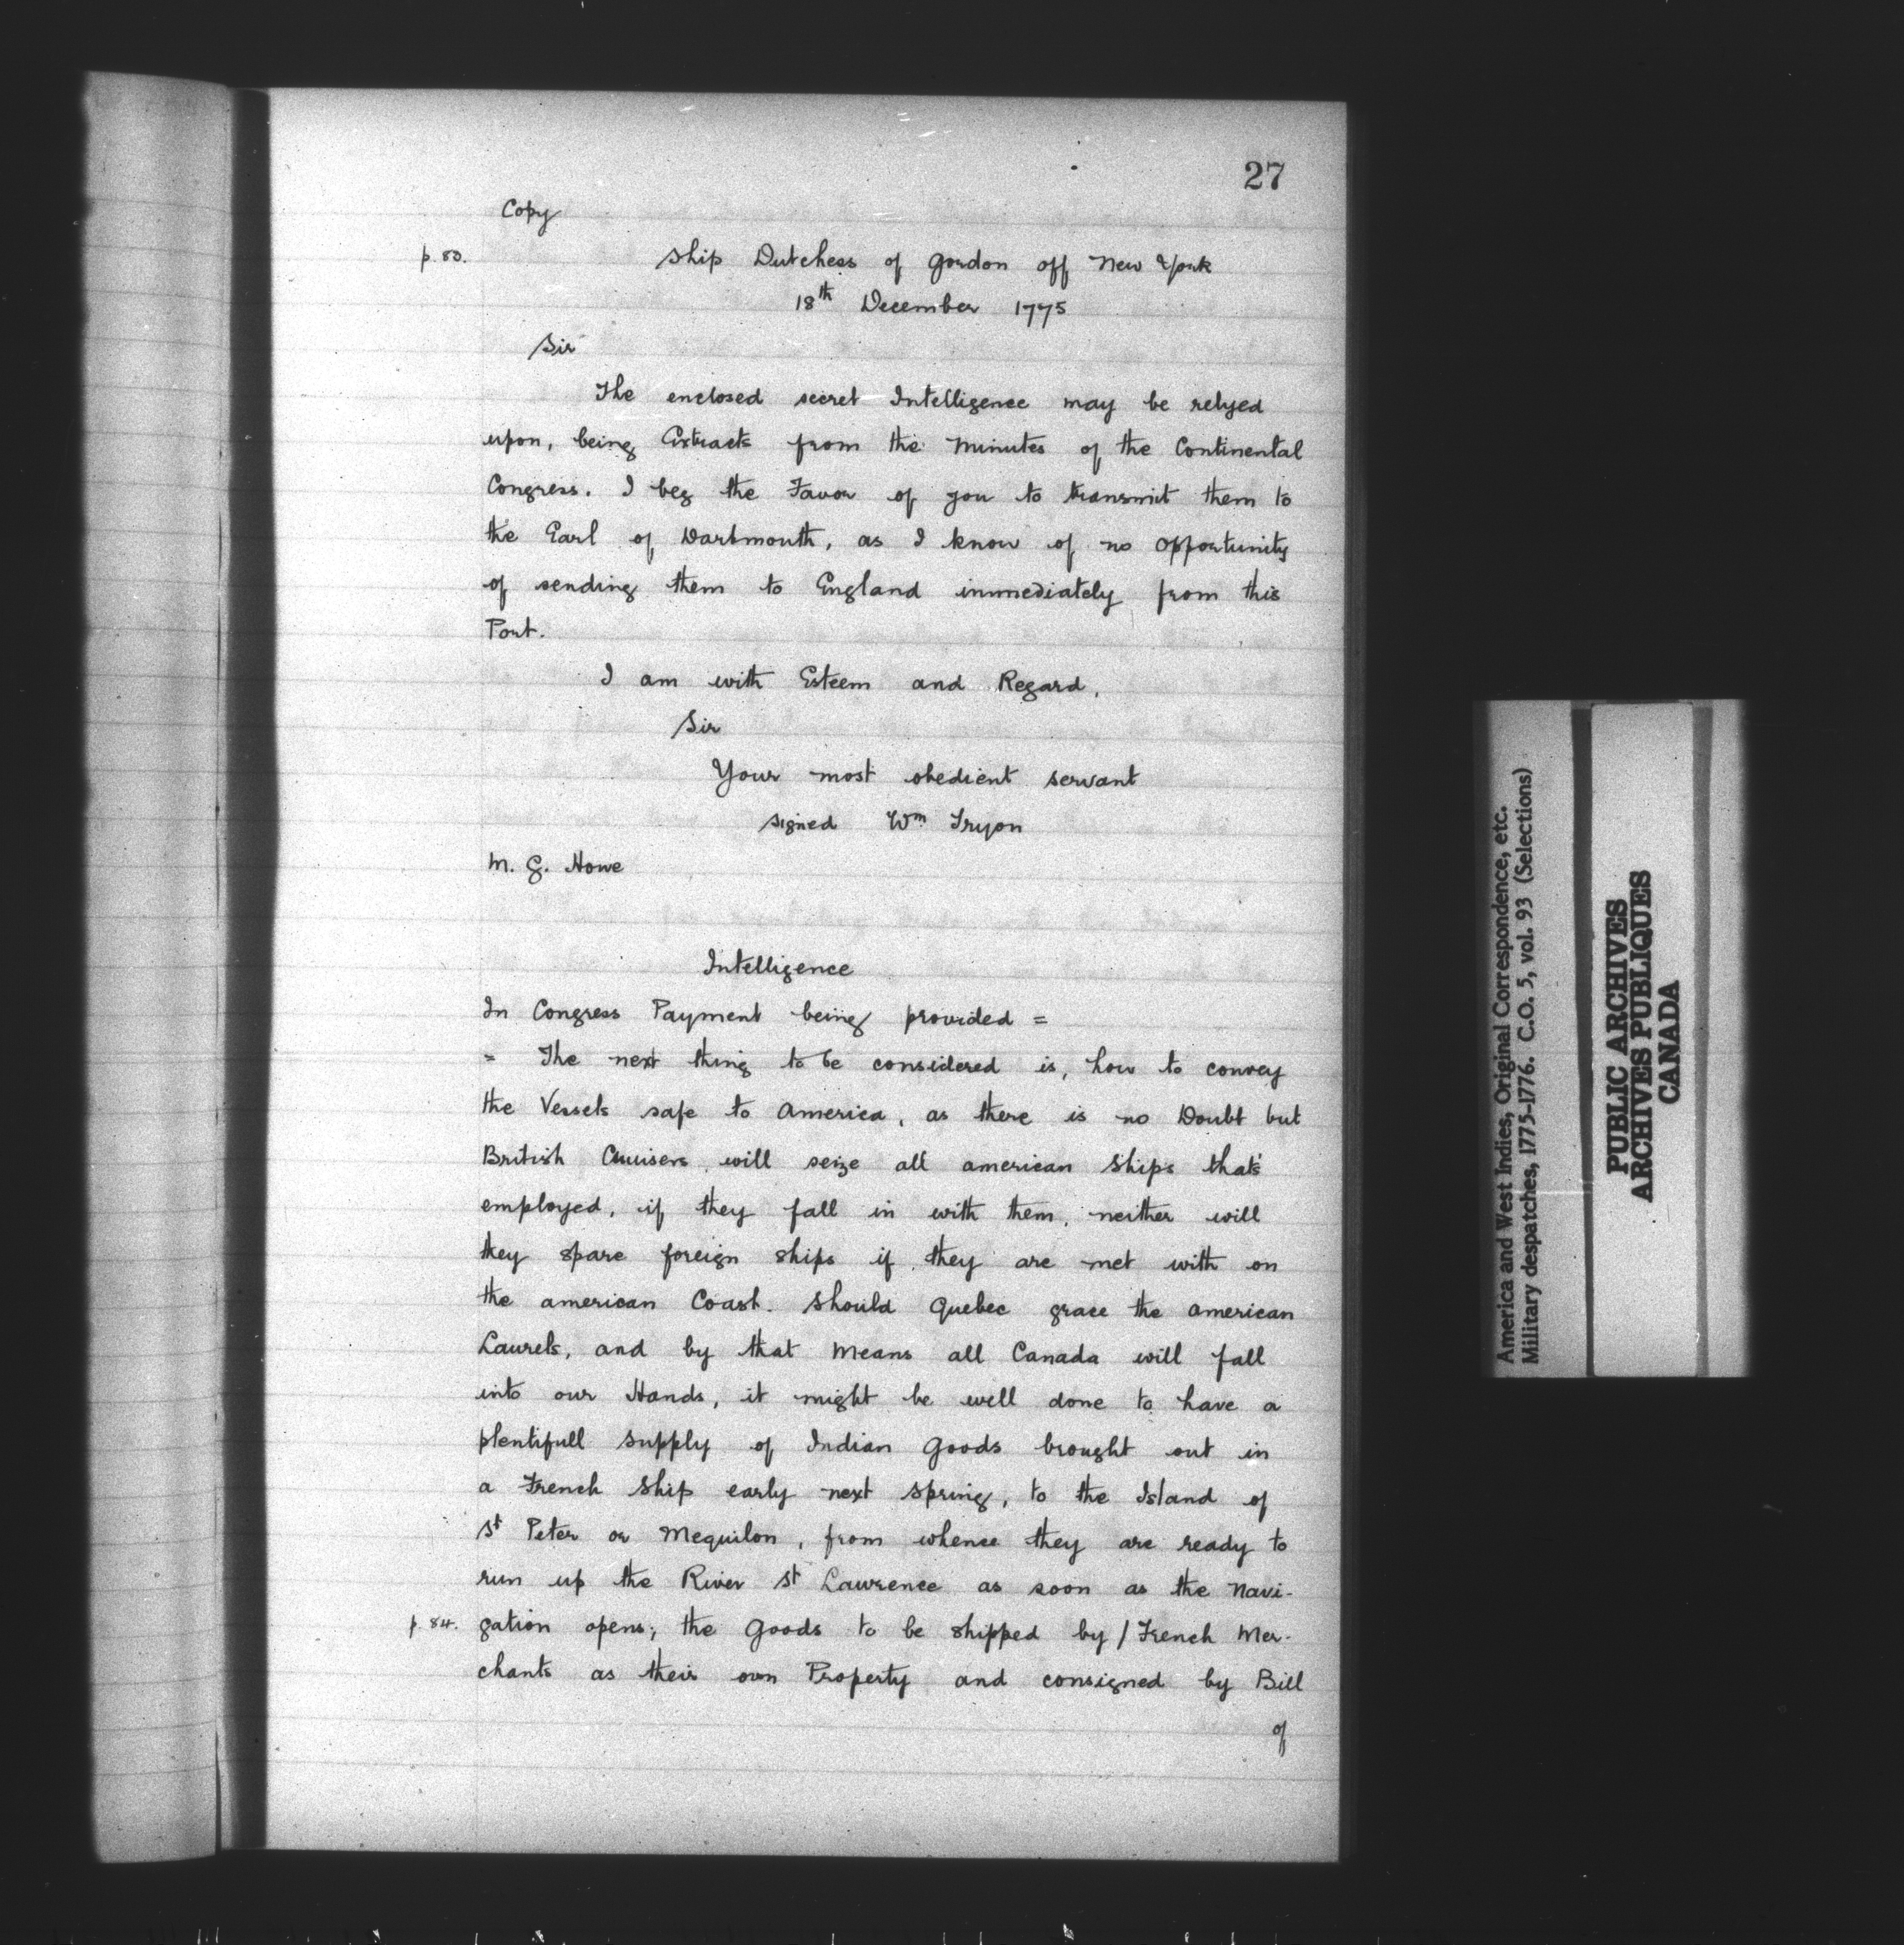 27
Copy
p. 83. Ship Dutchess of Gordon off New York
18th December 1775
Sir
The enclosed secret Intelligence may be relyed
upon, being Extracts from the Minutes of the Continental
Congress. I beg the Favor of you to transmit them to
the Earl of Dartmouth, as I know of no opportunity
of sending them to England immediately from this
Port.
I am with Esteem and Regard,
Sir
Your most obedient servant
signed Wm Tryon
M. G. Howe
Intelligence
In Congress Payment being provided =
= The next thing to be considered is, how to convey
the Vessels safe to America, as there is no Doubt but
British Cruisers will seize all american Ships that's
employed, if they fall in with them, neither will
they spare foreign ships if they are met with on
the american Coast. Should Quebec grace the american
Laurels, and by that Means all Canada will fall
into our Hands, it might be well done to have a
plentifull supply of Indian Goods brought out in
a French Ship early next spring, to the Island of
St Peter or Mequilon, from whence they are ready to
run up the River St Lawrence as soon as the Navi-
p. 84. gation opens; the Goods to be shipped by / French Mer-
chants as their own Property and consigned by Bill
of
America and West Indies, Original Correspondence, etc.
Military despatches, 1775-1776. C.O. 5, vol. 93 (Selections)
PUBLIC ARCHIVES
ARCHIVES PUBLIQUES
CANADA